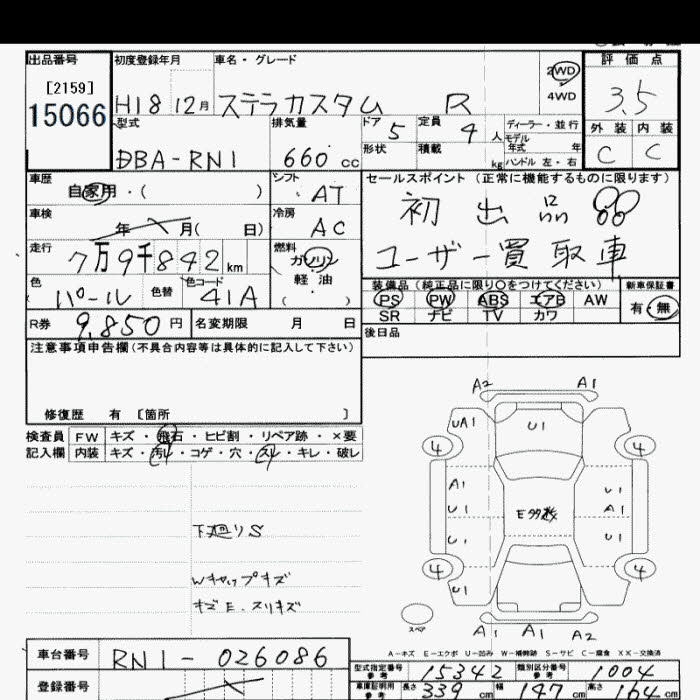 出品番号 初度登録年月 車名・グレード 評価点
[2159]
15066
H18 12月 ステラカスタム R
2WD
4WD
3.5
型式 排気量 ドア 5 定員 4人 ディーラー・並行
モデル年式 年
外装 内装
DBA-RN1 660cc 形状 積載 kg ハンドル 左・右
C C
車歴 シフト セールスポイント(正常に機能するものに限ります)
自家用・( ) AT
初出品
車検 冷房
年 月( 日) AC
走行 燃料
7万9千842km ガソリン
軽油
ユーザー買取車
色 色替 色コード ( )
パール 41A
装備品(純正品に限り○をつけてください) 新車保証書
PS PW ABS エアB AW 有・無
SR ナビ TV カワ
R券 9,850円 名変期限 月 日
後日品
注意事項申告欄(不具合内容等は具体的に記入して下さい)
修復歴 有 [箇所 ]
検査員 FW キズ・飛石・ヒビ割・リペア跡・×要
記入欄 内装 キズ・汚レ・コゲ・穴・スレ・キレ・破レ
A2 A1
UA1 U1
4 4
A1 U1
U1 E多数 A1
U1 U1
4 4
U1
スペア
A1 A1 A2
下廻りS
Wキャップキズ
キズE.スリキズ
A-キズ E-エクボ U-凹み W-補修跡 S-サビ C-腐食 XX-交換済
車台番号 RN1-026086
型式指定番号 参考 15342 類別区分番号 参考 1004
登録番号
車庫証明用 参考 長さ 339cm 幅 147cm 高さ cm